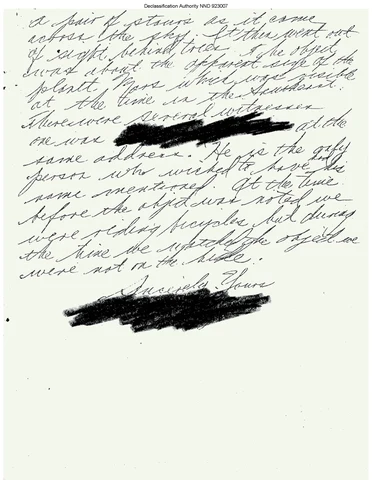 Declassification Authority NND 923007
a pair of stars as it came
across the sky. It then went out
of sight behind trees. The object
was about the apparent size of the
planet Mars which was visible
at the time in the Southeast.
There were several witnesses
one was at the
same address. He is the only
person who wished to have his
name mentioned. At the time
before the object was noted we
were riding bicycles but during
the time we watched the object we
were not on the bike.
Sincerely Yours